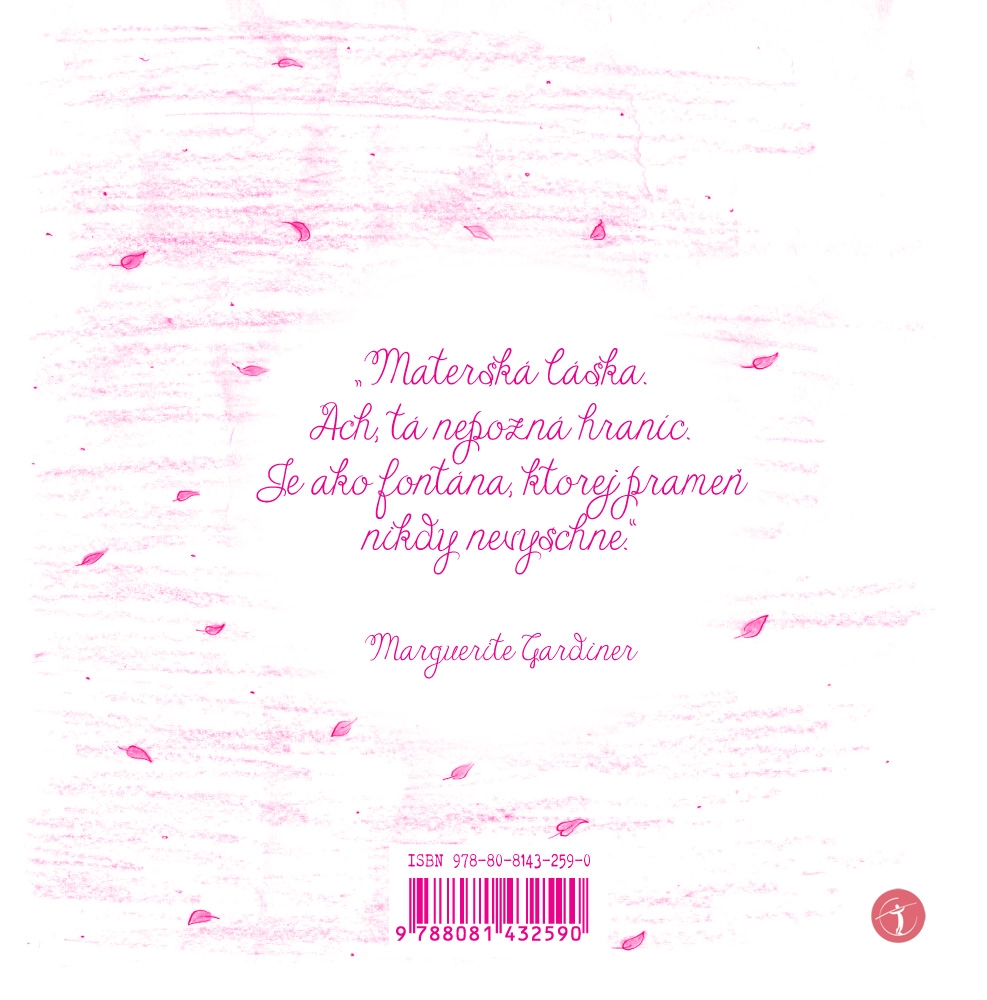 „Materská láska.
Ach, tá nepozná hraníc.
Je ako fontána, ktorej prameň
nikdy nevyschne.“
Marguerite Gardiner
ISBN 978-80-8143-259-0
9 788081 432590